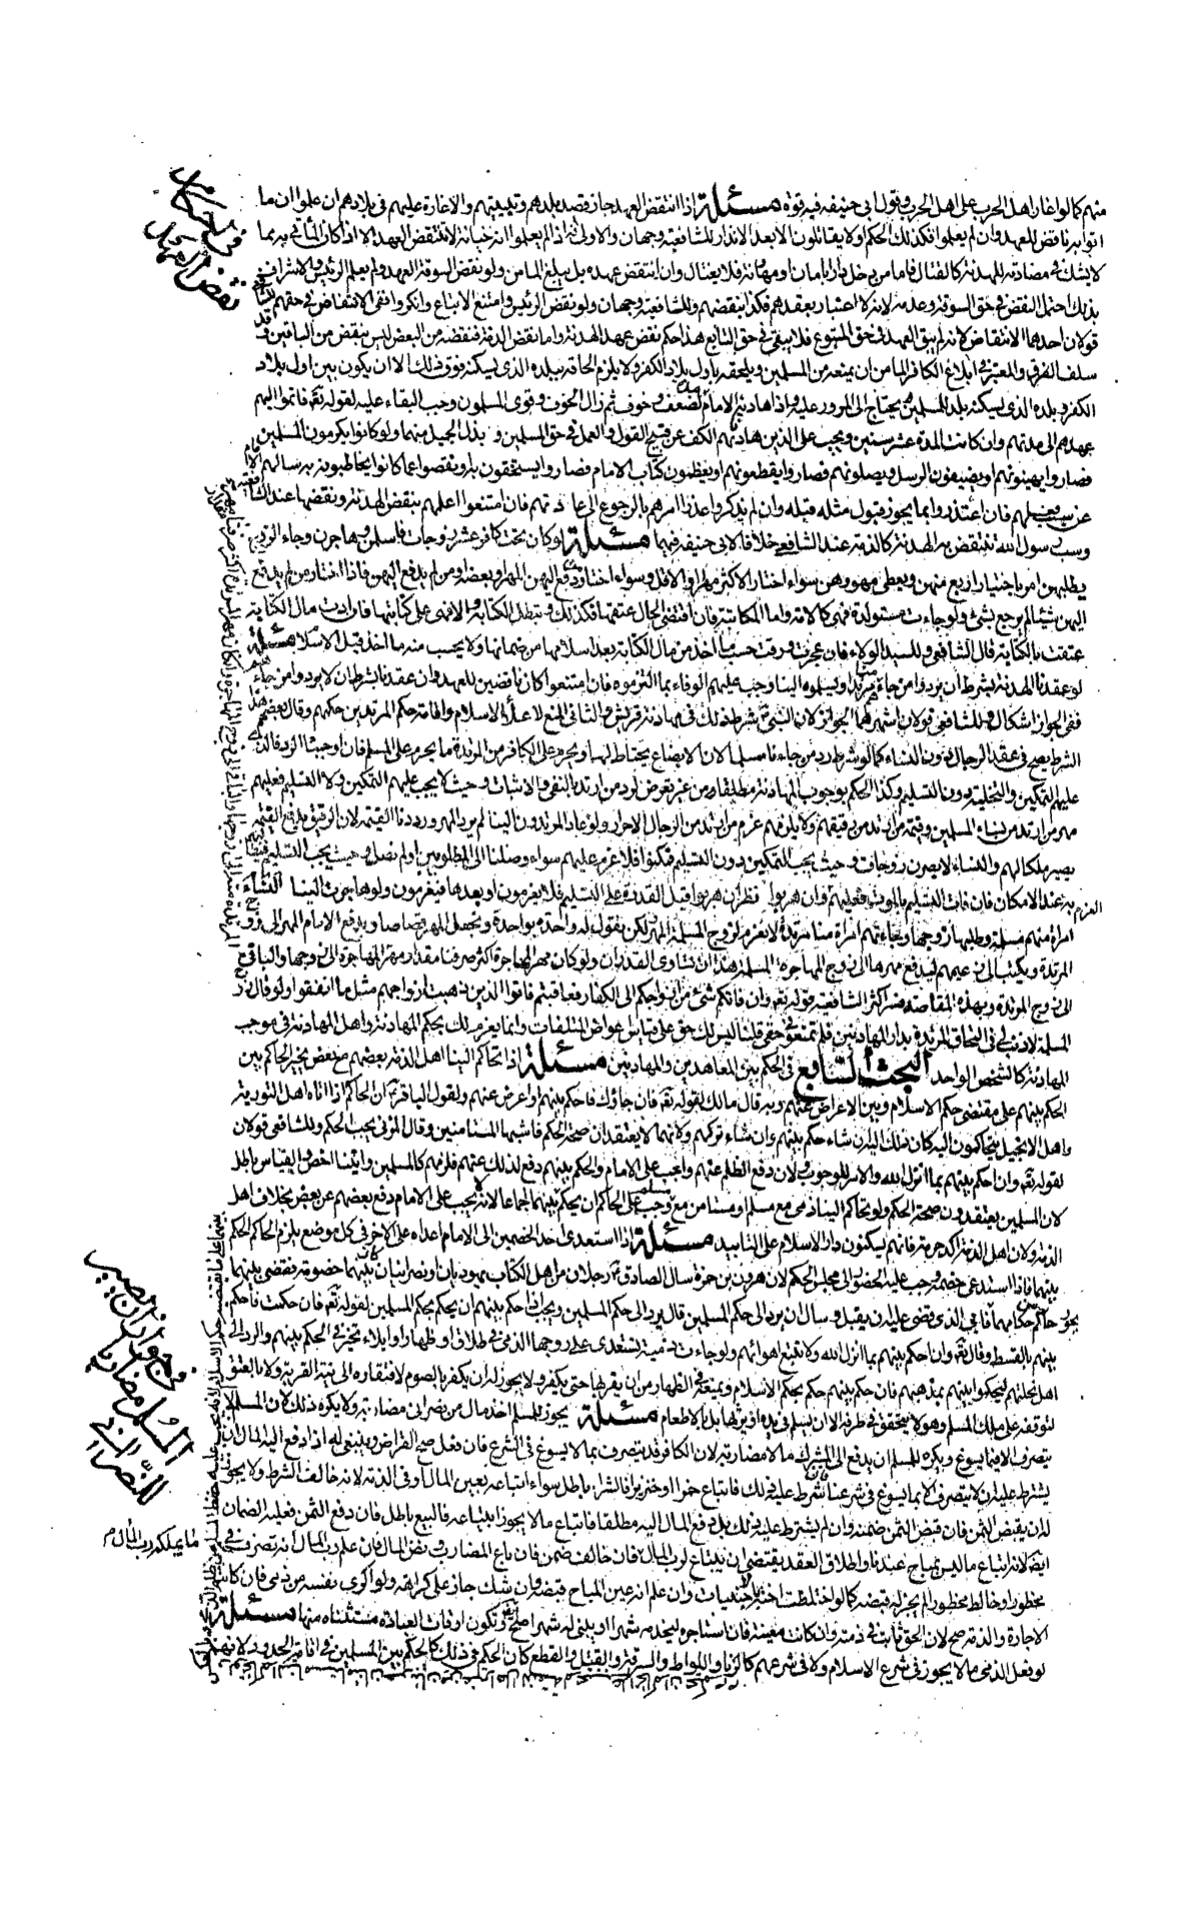 منهم كما لو اغار اهل الحرب على اهل الحرب وقول ابي حنيفه فيه قوة مسئلة اذا انتقض العهد جاز قصد بلدهم وتبييتهم والاغارة عليهم في بلادهم ان علموا ان ما
اتوا به ناقض للعهد وان لم يعلموا فكذلك الحكم او لا يقاتلون الا بعد الانذار للشافعية وجهان والاولى اذا لم يعلموا انه خيانة لا ينتقض العهد الا اذا كان المأتي به مما
لا يشك في مضادته للهدنة كالقتال فاما من دخل دارنا بامان او مهادنة فلا يغتال وان انتقض عهده بل يبلغ المامن ولو نقض السوقة العهد ولم يعلم الرئيس والاشراف
بذلك احتمل النقض في حق السوقة وعدمه لانه لا اعتبار بعقدهم فكذا بنقضهم وللشافعية وجهان ولو نقض الرئيس وامتنع الاتباع وانكروا ففي الانتقاض في حقهم للشافعي
قولان احدهما الانتقاض لانه لم يبق العهد في حق المتبوع فلا يبقى في حق التابع هذا حكم نقض عهد الهدنة واما نقض الذمة فنقضه من البعض ليس بنقض من الباقين وقد
سلف الفرق والمعتبر في ابلاغ الكافر المامن ان يمنعه من المسلمين ويلحقه باول بلاد الكفر ولا يلزم الحاقه ببلده الذي يسكنه فوق ذلك الا ان يكون بين اول بلاد
الكفر وبلده الذي يسكنه بلد للمسلمين يحتاج الى المرور عليه واذا هادنه الامام مدة لضعف وخوف ثم زال الخوف وقوى المسلمون وجب البقاء عليه لقوله تعالى فاتموا اليهم
عهدهم الى مدتهم وان كانت المدة عشر سنين ويجب على الذين هادنهم الكف عن قبيح القول والعمل في حق المسلمين وبذل الجميل منهما ولو كانوا يكرمون المسلمين
فصاروا يهينونهم او يضيفون الرسل ويصلونهم فصاروا يقطعونهم او يعظمون كتاب الامام فصاروا يستخفون به او نقصوا عما كانوا يخاطبونه به سالهم الامام
عن سبب فعلهم فان اعتذروا بما يجوز قبول مثله قبله وان لم يذكروا عذرا امرهم بالرجوع الى عادتهم فان امتنعوا اعلمهم بنقض الهدنة ونقضها عند الشافعية
وسب رسول الله تنتقض به الهدنة كالذمة عند الشافعي خلافا لابي حنيفة فيهما مسئلة لو كان تحت كافر عشر زوجات فاسلمن وهاجرن وجاء الزوج
يطلبهن امر باختيار اربع منهن ويعطى مهورهن سواء اختار الاكثر مهرا او الاقل وسواء اختار من دفع اليهن المهر او بعضه او من لم يدفع اليهن فاذا اختار من لم يدفع
اليهن شيئا لم يرجع بشئ ولو جاءت مستولدة فهي كالامة واما المكاتبة فان اقتضى الحال عتقها فكذلك وتبطل الكتابة والا فهي على كتابتها فان ادت مال الكتابة
عتقت بالكتابة قال الشافعي وللسيد الولاء فان عجزت ورقت حسب ما اخذ من مال الكتابة بعد اسلامها من ضمانها ولا يحسب منه ما اخذ قبل الاسلام مسئلة
لو عقدنا الهدنة بشرط ان يردوا من جاءهم منا مرتدا ويسلموه الينا وجب عليهم الوفاء بما التزموه فان امتنعوا كانوا ناقضين للعهد وان عقدنا بشرط ان لا يردوا من جاءهم
ففي الجواز اشكال وللشافعي قولان اشهرهما الجواز لان النبي شرط ذلك في مهادنة قريش والثاني المنع لاعلاء الاسلام واقامة حكم المرتدين حكمهم وقال بعضهم هذا
الشرط يصح في عقد الرجال دون النساء كما لو شرط رد من جاءنا مسلما لان الابضاع يحتاط لها ويحرم على الكافر من المرتدة ما يحرم على المسلم فان اوجبنا الرد فالذي
عليهم التمكين والتخلية دون التسليم وكذا الحكم بوجوب المهادنة مطلقا ومن غير تعرض لرد من ارتد بالنفي والاثبات وحيث لا يجب عليهم التمكين ولا التسليم فعليهم
مهر من ارتد من نساء المسلمين وقيمة من ارتد من رقيقهم ولا يلزمهم غرم من ارتد من الرجال الاحرار ولو عاد المرتدون الينا لم نرد المهر ورددنا القيمة لان الرقيق بدفع القيمة
يصير ملكا لهم والنساء لا يصرن زوجات وحيث يجب التمكين دون التسليم فمكنوا فلا غرم عليهم سواء وصلنا الى المطلوبين او لم نصل وحيث يجب التسليم فيطالبهم
به عند الامكان فان فات التسليم بالموت فعليهم الغرم وان هربوا نظر ان هربوا قبل القدرة على التسليم فلا يغرمون او بعدها فيغرمون ولو هاجرت الينا
امراة منهم مسلمة وطلبها زوجها وجاءتهم امراة منا مرتدة لا نغرم لزوج المسلمة المهر لكن نقول له واحدة بواحدة ونجعل المهر قصاصا ويدفع الامام المهر الى زوج
المرتدة ويكتب الى زعيمهم ليدفع مهرها الى زوج المهاجرة المسلمة هذا ان تساوى القدران ولو كان مهر المهاجرة اكثر صرفنا مقدار مهر المهاجرة الى زوجها والباقي
الى زوج المرتدة وبهذه المقاصة فسر اكثر الشافعية قوله تعالى وان فاتكم شئ من ازواجكم الى الكفار فعاقبتم فاتوا الذين ذهبت ازواجهم مثل ما انفقوا ولو قال زوج
المسلمة لا ذنب لي في التحاق المرتدة بدار المهادنين فلم تمنعوني حقي قلنا ليس لك حق على قياس عوض المتلفات وانما يغرم لك بحكم المهادنة واهل المهادنة في موجب
المهادنة كالشخص الواحد البحث السابع في الحكم بين المعاهدين والمهادنين مسئلة اذا تحاكم الينا اهل الذمة بعضهم مع بعض تخير الحاكم بين
الحكم بينهم على مقتضى حكم الاسلام وبين الاعراض عنهم وبه قال مالك لقوله تعالى فان جاؤك فاحكم بينهم او اعرض عنهم ولقول الباقر ان الحاكم اذا اتاه اهل التورية
واهل الانجيل يتحاكمون اليه كان ذلك اليه ان شاء حكم بينهم وان شاء تركهم ولانهما لا يعتقدان صحة الحكم فاشبها المستامنين وقال المزني يجب الحكم وللشافعي قولان
لقوله تعالى وان احكم بينهم بما انزل الله والامر للوجوب ولان دفع الظلم عنهم واجب على الامام والحكم بينهم دفع لذلك عنهم فلزمه كالمسلمين وايتنا اخص والقياس باطل
لان المسلمين يعتقدون صحة الحكم ولو تحاكم الينا ذمي مع مسلم او مستامن مع مسلم وجب على الحاكم ان يحكم بينهما اجماعا لانه يجب على الامام دفع بعضهم عن بعض بخلاف اهل
الذمة ولان اهل الذمة اكد حرمة فانهم يسكنون دار الاسلام على التابيد مسئلة اذا استعدى احد الخصمين الى الامام اعداه على الاخر في كل موضع يلزم الحاكم الحكم
بينهما فاذا استدعى خصمه وجب عليه الحضور الى مجلس الحكم لان هرون بن حمزة سال الصادق رجلان من اهل الكتاب يهوديان او نصرانيان كان بينهما خصومة فقضى بينهما
بحق حاكم من حكامهما فابى الذي قضي عليه ان يقبل وسال ان يرد الى حكم المسلمين قال يرد الى حكم المسلمين ويجب اذا حكم بينهم ان يحكم بحكم المسلمين لقوله تعالى فان حكمت فاحكم
بينهم بالقسط وقال تعالى وان احكم بينهم بما انزل الله ولا تتبع اهوائهم ولو جاءت ذمية تستعدي على زوجها الذمي في طلاق او ظهار او ايلاء تخير في الحكم بينهم والرد الى
اهل نحلتهم ليحكموا بينهم بمذهبهم فان حكم بينهم حكم بحكم الاسلام ويمنعه في الظهار من ان يقربها حتى يكفر ولا يجوز له ان يكفر بالصوم لافتقاره الى نية القربة ولا بالعتق
لتوقفه على ملك المسلم وهو لا يتحقق في طرفه الا ان يسلم في يده او يرثه بل بالاطعام مسئلة يجوز للمسلم اخذ مال من نصراني مضاربة ولا يكره ذلك لان المسلم لا
يتصرف الا فيما يسوغ ويكره للمسلم ان يدفع الى المشرك مالا مضاربة لان الكافر قد يتصرف بما لا يسوغ في الشرع فان دفع صح القراض وينبغي له اذا دفع اليه المال ان
يشترط عليه ان لا يتصرف الا بما يسوغ في شرعنا فان شرط عليه ذلك فابتاع خمرا او خنزيرا فالشراء باطل سواء ابتاعه بعين المال او في الذمة لانه خالف الشرط ولا يجوز
له ان يقبض الثمن فان قبض الثمن ضمنه وان لم يشترط عليه ذلك بل دفع المال اليه مطلقا فابتاع ما لا يجوز ابتياعه فالبيع باطل فان دفع الثمن فعليه الضمان
ايضا لانه ابتاع ما ليس بمباح عندنا واطلاق العقد يقتضي ان يبتاع لرب المال ما يملكه رب المال فان خالف ضمن فان باع المضارب ونض المال فان علم رب المال انه تصرف في
محظور او خالط محظورا لم يجز له قبضه كما لو اختلطت اخته باجنبيات وان علم انه من المباح قبضه وان شك جاز على كراهة ولو اكرى نفسه من ذمي فان كانت
الاجارة والذمة صح لان الحق ثابت في ذمته وان كانت معينة فان استاجره ليخدمه شهرا او يبنى له شهرا صح وتكون اوقات العبادة مستثناة منها مسئلة
لو فعل الذمي ما لا يجوز في شرع الاسلام ولا في شرعهم كالزنا واللواط والسرقة والقتل والقطع كان الحكم في ذلك كالحكم بين المسلمين في اقامة الحدود
في احكام
نقض العهد
في جواز ان يصير
المسلم مضاربا
للنصراني